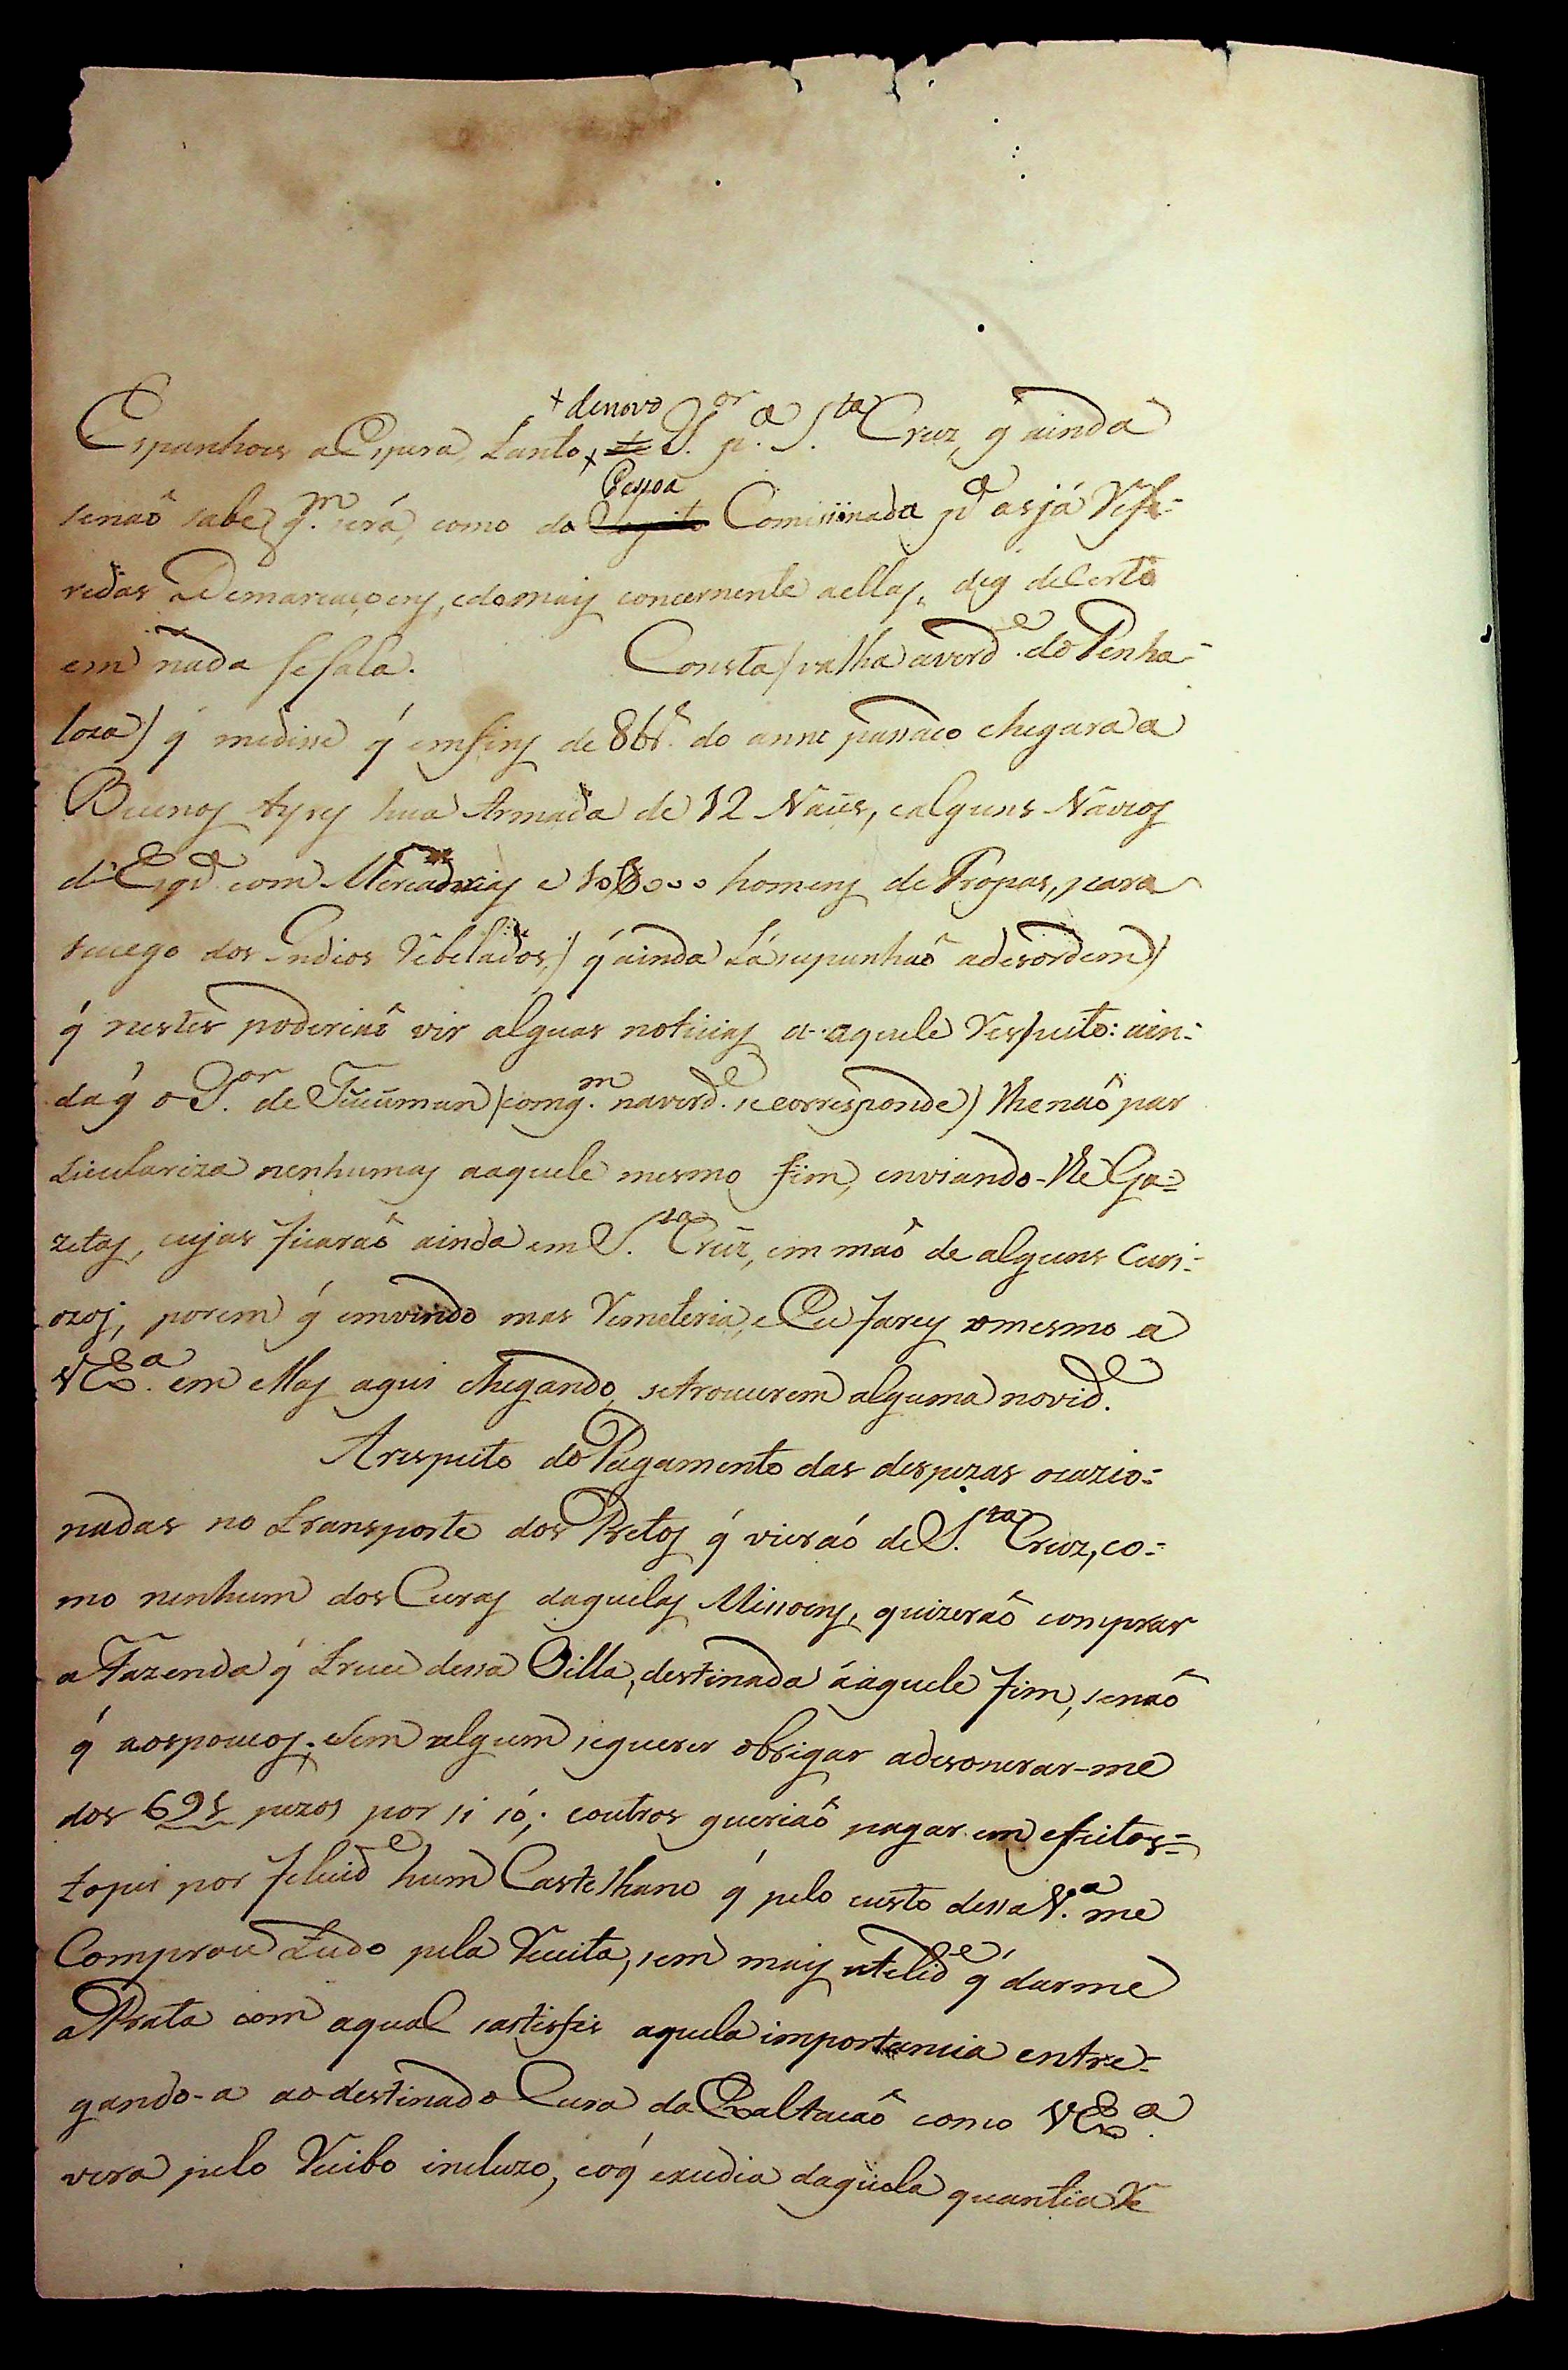 + denovo
Espanhoes a Espera, tanto + G.or p.a S.ta Cruz, q́ ainda
Pessoa
senaõ sabe q.m será, como da Comisionada p.a as já Refe-
ridas Demarcaçoens, edomais concernente aellas, deq́ decerto
em nada se fala. Consta (valha averd.e do Penha-
loza) q́ medisse q́ emfins de 8br.o do anno passado chegara a
Buenos Ayres hua Armada de 12 Naûs, ealguns Navios
de Esqd.a com Mercadorias e 10000 homens de Tropas, para
sucego dos Indios Rebelados,) q́ ainda Lá supunhaõ adesordem)
q́ nestes poderiaõ vir alguas noticias a aquele Respeito: ain-
daq́ o G.or de Tucuman (comq.m naverd.e secorresponde) lhe naõ par
ticulariza nenhumas aaquele mesmo fim, enviando-lhe Ga-
zetas, cujas ficaraõ ainda em S.ta Cruz, em maõ de alguns Curi-
ozos, porem q́ emvindo mas Remeteria, e Eu farey omesmo a
VEx.a em ellas aqui chegando, setrouxerem alguma novid.e
Arespeito do Pagamento das despezas ocazio-
nadas no transporte dos Pretos q́ vieraõ de S.ta Cruz, co-
mo nenhum dos Curas daquelas Missoens, quizeraõ comprar
a Fazenda q́ truce dessa Villa, destinada áaquele fim, senaõ
q́ aospoucos, sem algum sequerer obrigar adesonerar-me
dos 695 pezos por si só; eoutros queriaõ pagar em efeitos-
topei por felicid.e hum Castelhano q́ pelo custo dessa V.a me
Comprou tudo pela Receita, sem mais utelid.e q́ darme
a Prata com aqual sastisfis aquela importancia entre-
gando-a ao destinado Cura da Exaltacaõ como VEx.a
vera pelo Recibo incluzo, eoq́ exudia daquela quantia Re